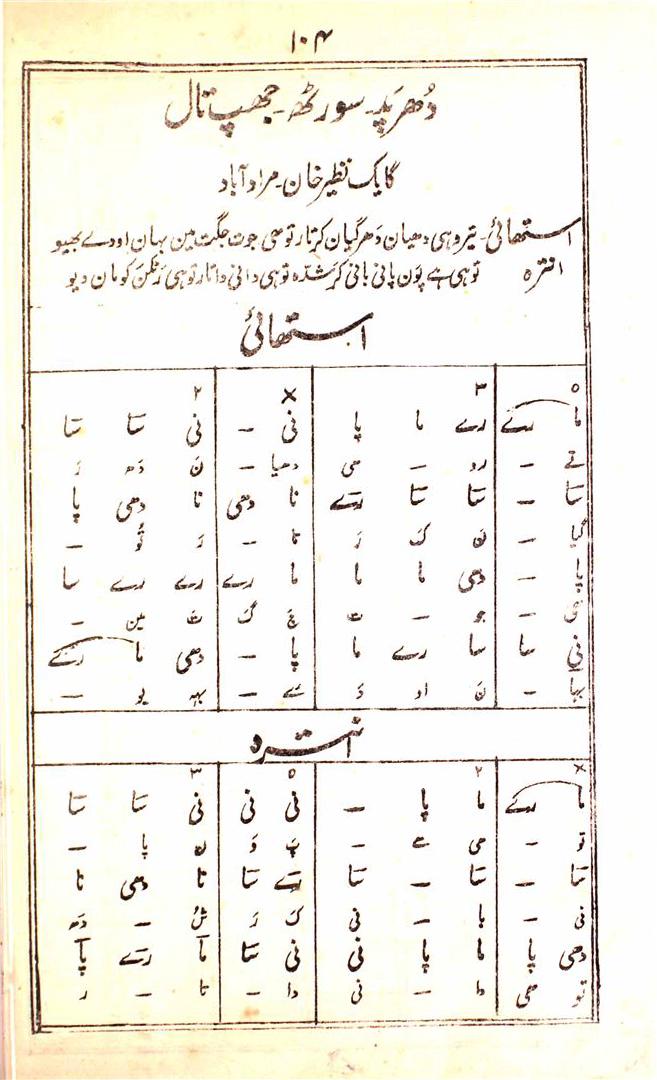 ۱۰۴
دُھرپَد۔ سورٹھ۔ جھپ تال
گایک نظیر خان۔ مرادآباد
استھائی۔ تیروہی دھیان دَھر گیان کرتار توہی جوت جگت مین بہان اودے بھیو
انترہ توہی ہے پوَن پانی بانی کرَشدہ توہی دانی داتار توہی رنگن کو مان دیو
استھائی
० ۳ × ۲
ما رے رے ما پا نی - نی سَا سَا
تے - رو - ہی دھیا - ن دَھ رَ
سَا - سَا سَا رے نا دھی نا دھی پا
گیا - ن کَ رَ تا - رَ تُو -
پا - دھی ما ما ما رے رے رے سا
ہی - جو - ت جَ گَ تَ مین -
نی سا سا رے ما پا - دھی ما رے
بہا - ن او دَ ے - بھ یو -
انترہ
× ۲ ० ۳
ما رے ما پا - نی نی نی سَا سَا
تو - ہی ہے - پَ وَ ن پا -
سَا - سَا - سَا رے سَا نا دھی نا
نی - با - نی کَ رَ شُ - دَھ
دھی پا ما پا نی نی سَا ما رے پا
تو ہی دا - نی دا - تا - ر